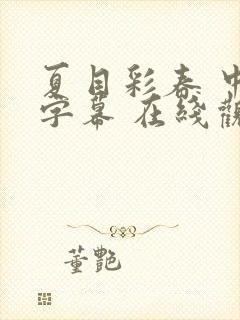 夏目彩春 中
字幕 在线觀
董艷